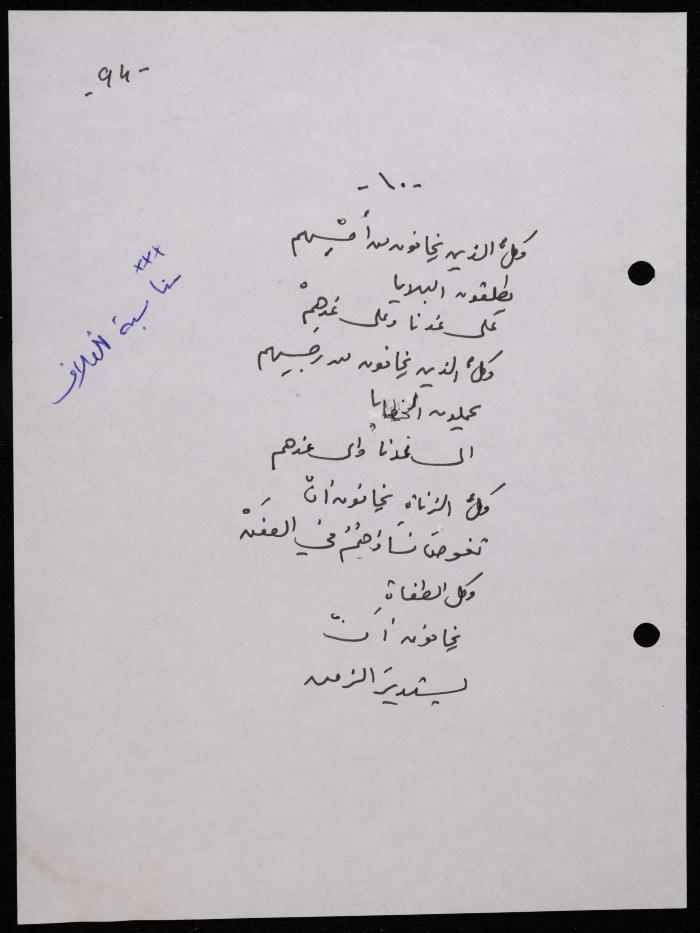 -٩٤-
-١٠-
وكلُّ الذين يخافون من أمْسِهم
يطلقون البلايا
على غدنا وعلى غدهِمْ
وكلُّ الذين يخافون من رجسِهم
يحملون الخطايا
الى غدنا والى غدهم
وكلُّ الزناةِ يخافون أنّ
تغوصَ نساؤهُمُ في العفَنْ
وكل الطغاة
يخافون أنّ
يستديرَ الزمن
×××
مناسبة للغلاف